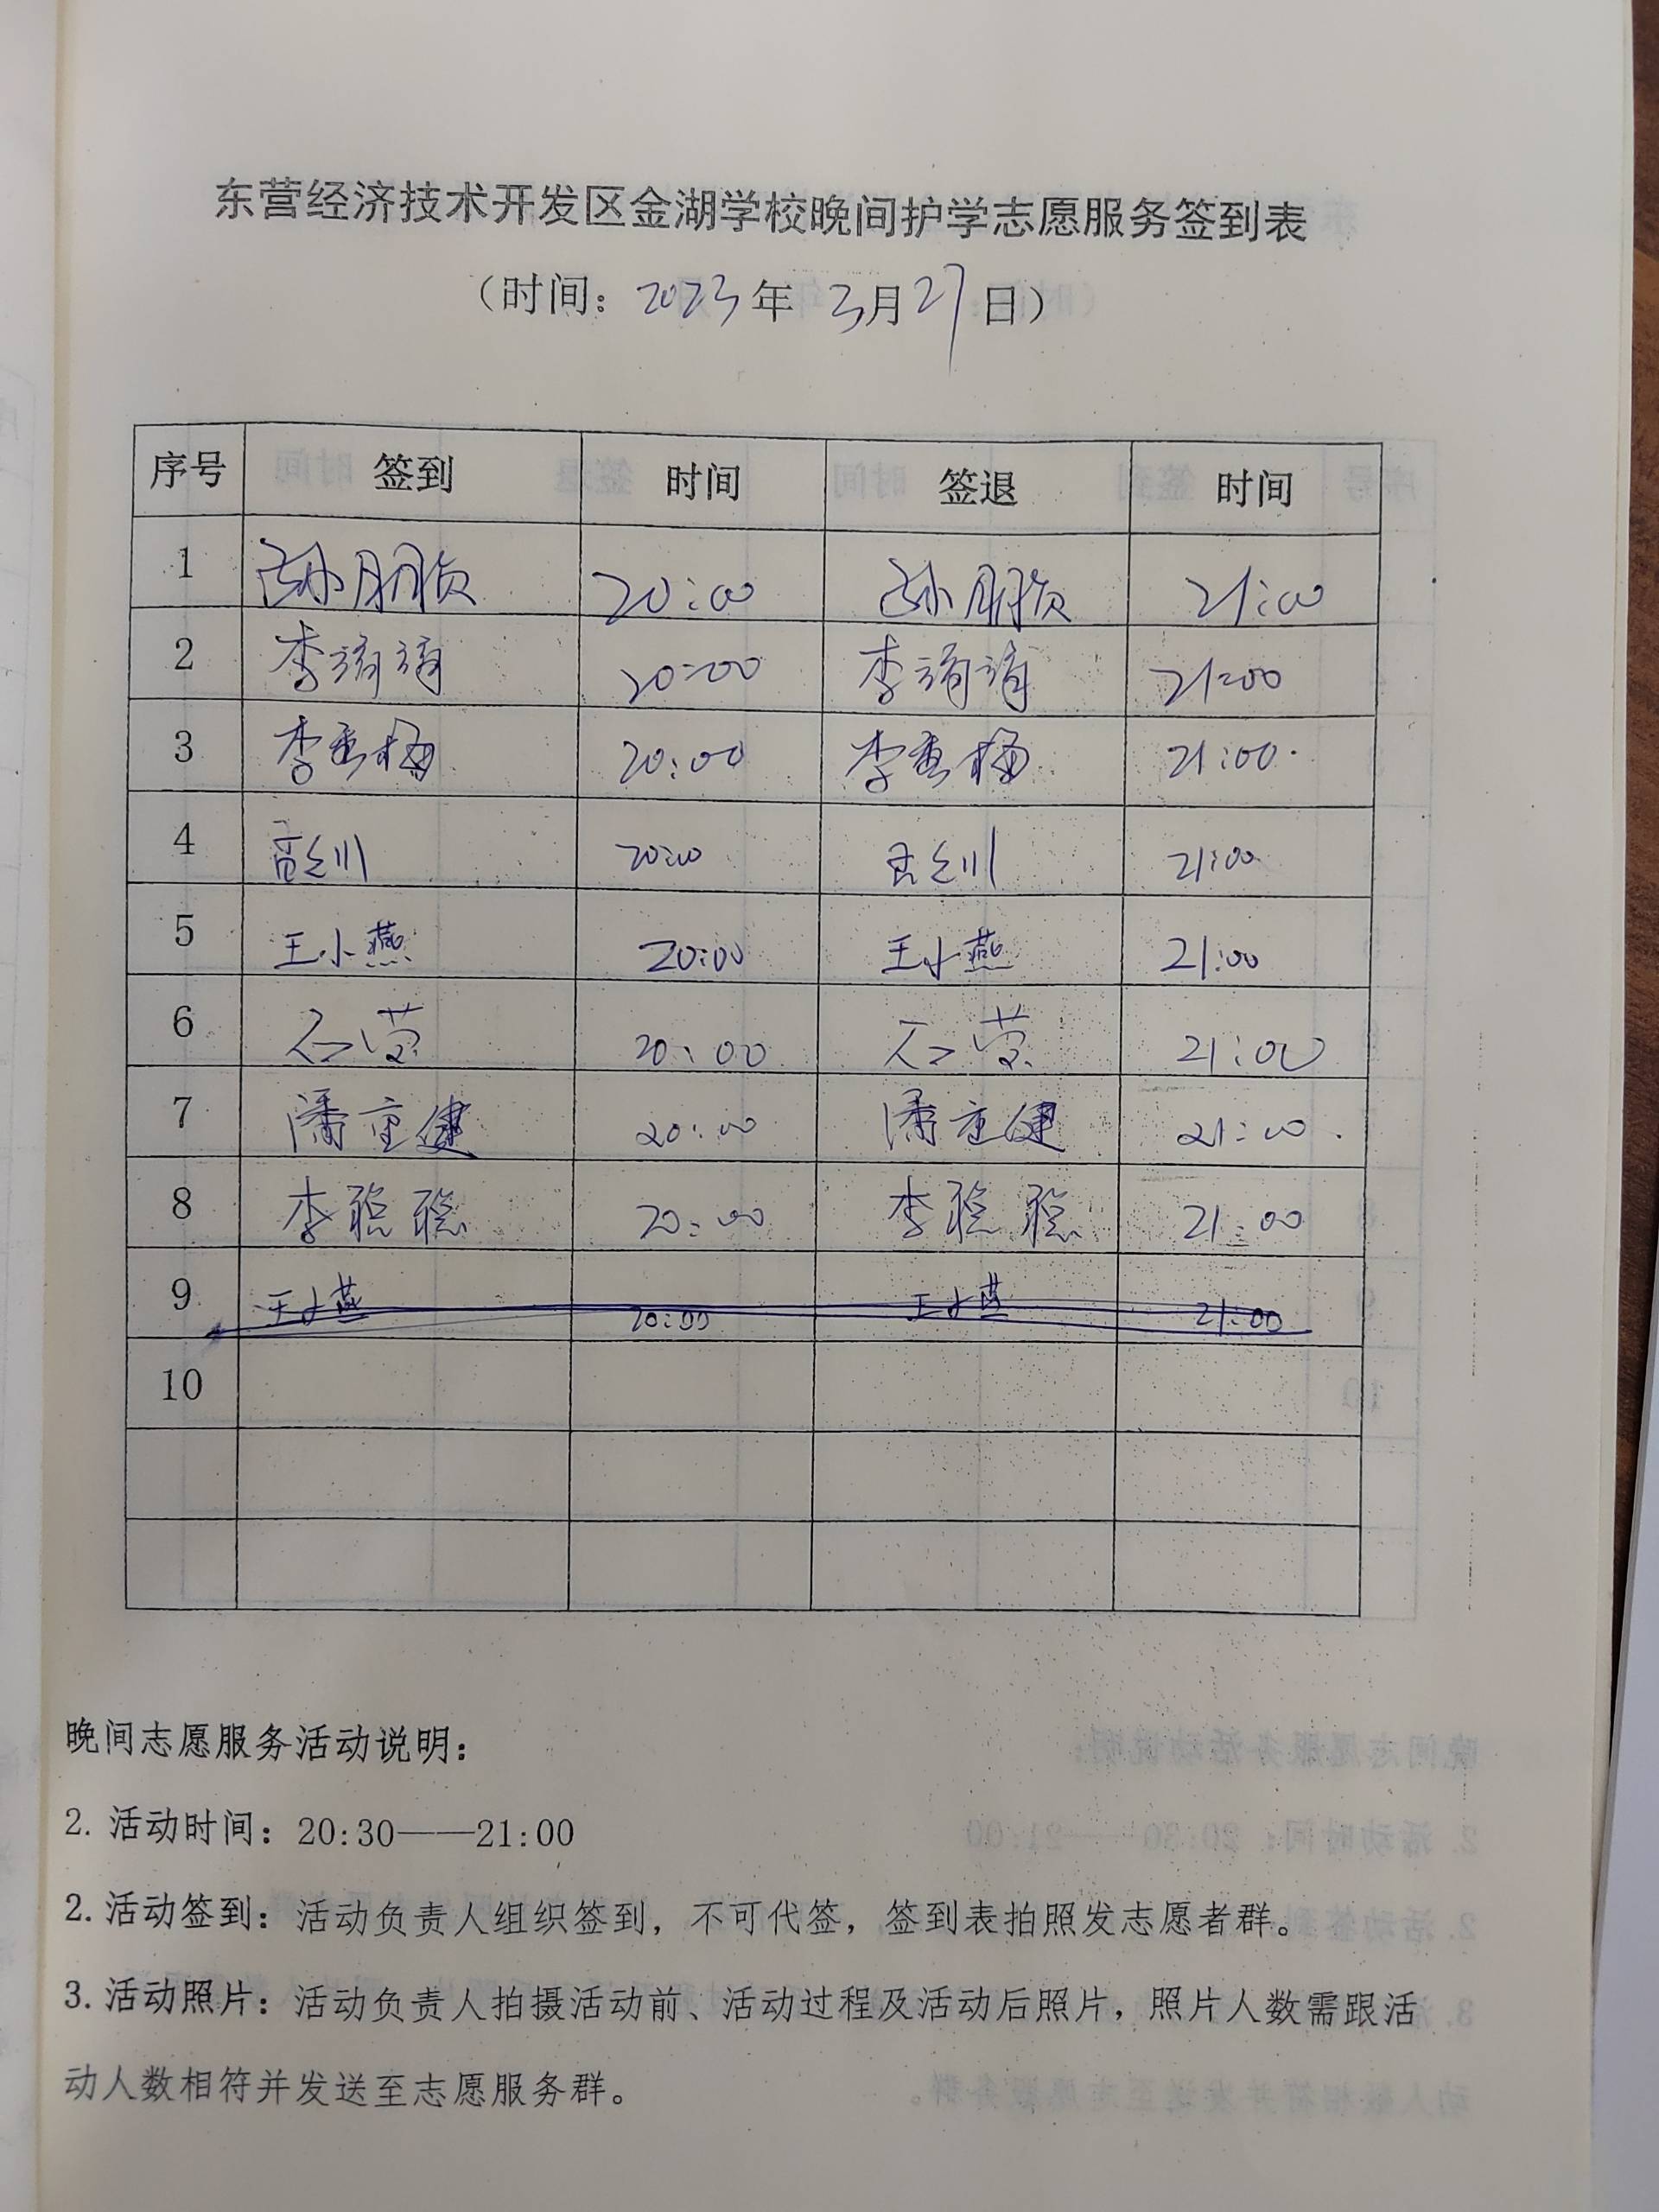 东营经济技术开发区金湖学校晚间护学志愿服务签到表
（时间：2023年 3月27日）
序号 签到 时间 签退 时间
1 20:00 21:00
2 李 20:00 李 21:00
3 李 梅 20:00 李 梅 21:00
4 20:00 21:00
5 王小燕 20:00 王小燕 21:00
6 石莹 20:00 石莹 21:00
7 潘重健 20:00 潘重健 21:00
8 李聪聪 20:00 李聪聪 21:00
9 王小燕 20:00 王小燕 21:00
10
晚间志愿服务活动说明：
2. 活动时间：20:30——21:00
2. 活动签到：活动负责人组织签到，不可代签，签到表拍照发志愿者群。
3. 活动照片：活动负责人拍摄活动前、活动过程及活动后照片，照片人数需跟活
动人数相符并发送至志愿服务群。